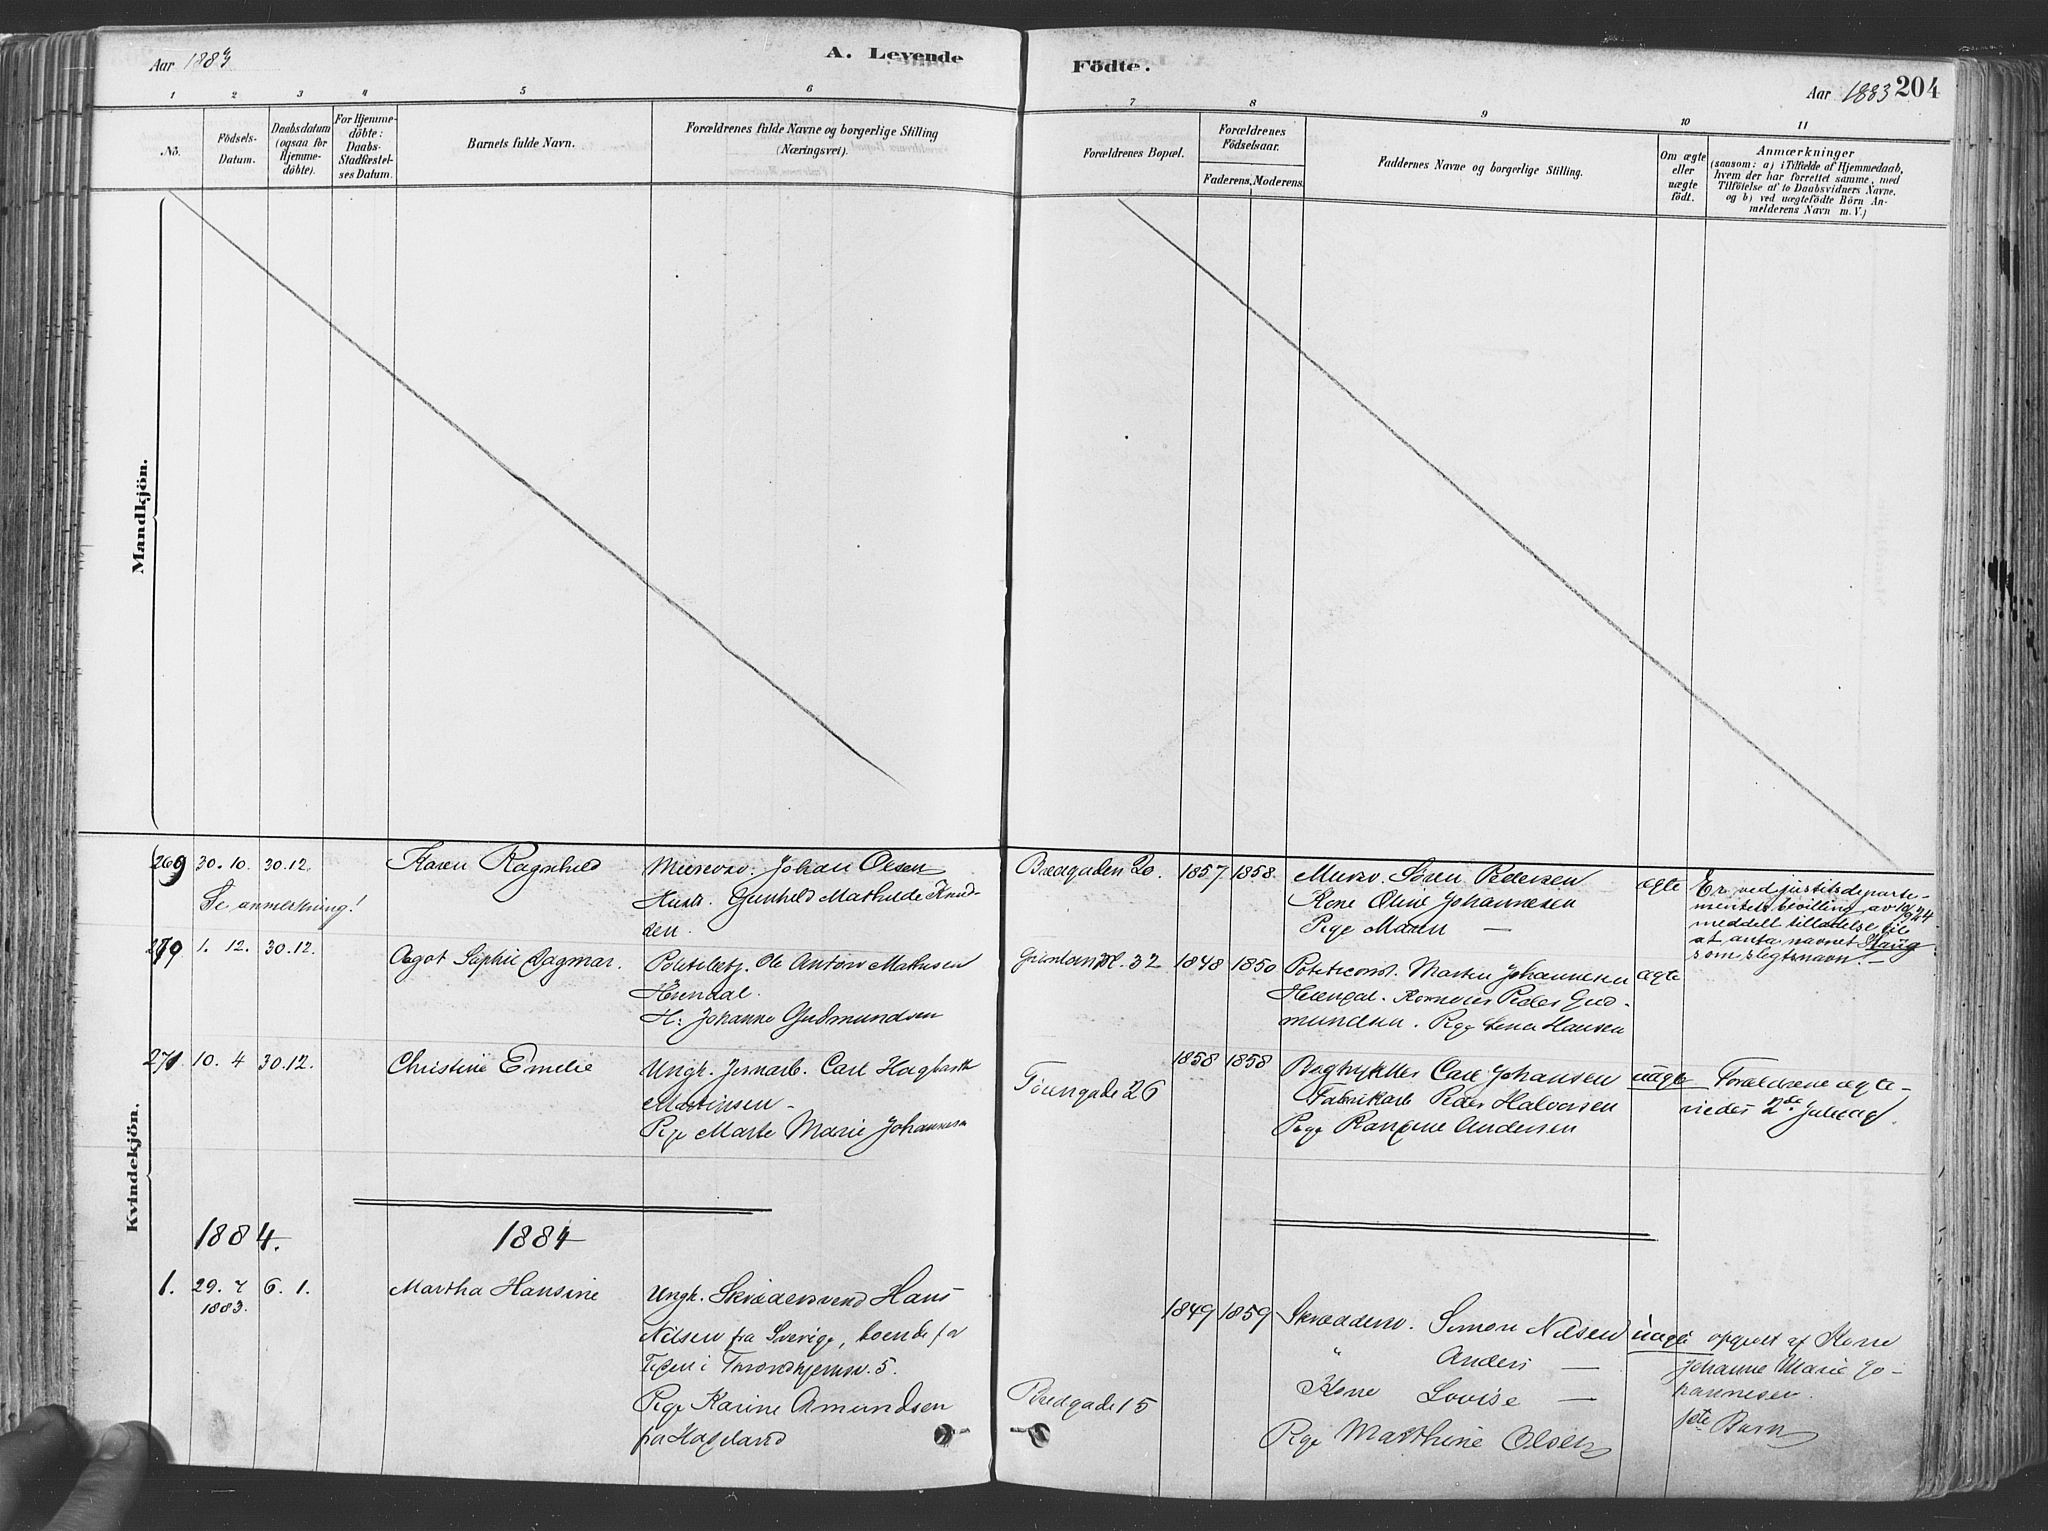 Aar 1883
A. Levende
Födte.
Aar 1883 204
1 2 3 4 5 6 7 8 9 10 11
No.
Födsels-Datum.
Daabsdatum (ogsaa for Hjemme-döbte).
For Hjemme-döbte: Daabs-Stadfæstel-ses Datum.
Barnets fulde Navn.
Forældrenes fulde Navne og borgerlige Stilling (Næringsvei).
Forældrenes Bopæl.
Forældrenes Födselsaar.
Faderens. Moderens.
Faddernes Navne og borgerlige Stilling.
Om ægte eller uægte födt.
Anmærkninger
(saasom: a) i Tilfælde af Hjemmedaab,
hvem der har forrettet samme, med
Tilföielse af to Daabsvidners Navne,
og b) ved uægtefödte Börn An-
melderens Navn m. V.)
Mandkjön.
Kvindekjön.
269 30. 10. 30.12.
Se anmerkning!
Karen Ragnhild
Murersv. Johan Olsen
Hustr. Gunhild Mathilde Knud-
sen.
Bredgaden 20.
1857 1858
Mursv. Søren Pedersen
Kone Oline Johannesen
Pige Maren —
ægte
Er ved justitsdeparte-
mentets bevilling av
1924
meddelt tilladelse til
at anta navnet Haug
som slegtsnavn.
270 1. 12. 30.12.
Aagot Sophie Dagmar.
Politibetj. Ole Anton Mathisen
H: Johanne Gudmundsen
Grønland 32
1848 1850
Politiconst. Martin Johannesen
Peder Gud-
mundsen. Pige Lena Hansen
ægte
271. 10. 4 30.12.
Christine Emelie
Ungk. Jernarb. Carl Hagbarth
Martinsen
Pige Marte Marie Johannesen
Tøiengade 26
1858 1858
Bogtrykker Carl Johansen
Fabrikarb Peder Halvorsen
Pige Andersen
uægte
Forældrene ægte-
viedes 2de Juledag.
1884. 1884
1. 29. 7 6. 1.
1883.
Martha Hansine
Ungk. Skrædersvend Hans
Nilsen fra Sverige, boende for
Tiden i Trondhjemsv. 5.
Pige Karine Amundsen
fra Hageland
Bredgade 15
1849 1859
Skræddersv. Simon Nilsen
" Anders —
Kone Lovise —
Pige Marthine Olsen
uægte
opgivet af Kone
Johanne Marie Jo-
hannesen.
1ste Barn